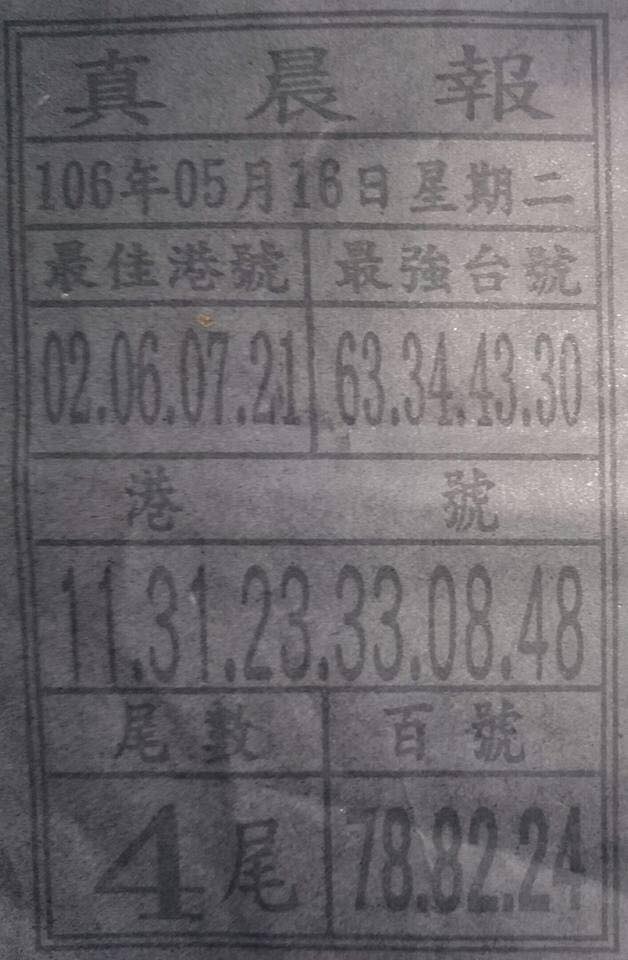 真晨報
106年05月16日星期二
最佳港號 最強台號
02.06.07.21 63.34.43.30
港號
11.31.23.33.08.48
尾數 百號
4尾 78.82.24